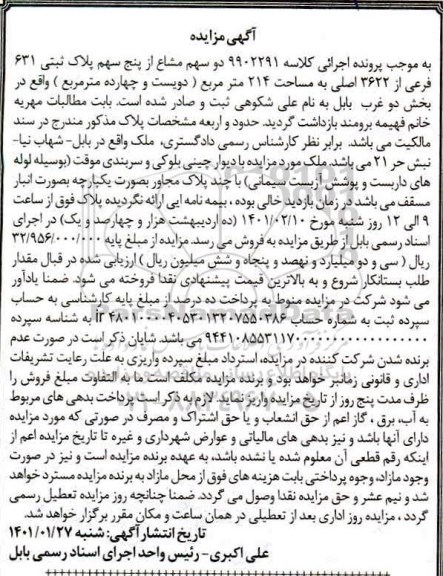 آگهی مزایده
به موجب پرونده اجرائی کلاسه ۹۹۰۲۲۹۱ دو سهم مشاع از پنج سهم پلاک ثبتی ۶۳۱
فرعی از ۳۶۲۲ اصلی به مساحت ۲۱۴ متر مربع ( دویست و چهارده مترمربع ) واقع در
بخش دو غرب بابل به نام علی شکوهی ثبت و صادر شده است. بابت مطالبات مهریه
خانم فهیمه برومند بازداشت گردید. حدود و اربعه مشخصات پلاک مذکور مندرج در سند
مالکیت می باشد. برابر نظر کارشناس رسمی دادگستری، ملک واقع در بابل- شهاب نیا-
نبش حر ۲۱ می باشد. ملک مورد مزایده با دیوار چینی بلوکی و سربندی موقت (بوسیله لوله
های داربست و پوشش آربست سیمانی) با چند پلاک مجاور بصورت یکپارچه بصورت انبار
مسقف می باشد در زمان بازدید خالی بوده ، بیمه نامه ایی ارائه نگردیده پلاک فوق از ساعت
۹ الی ۱۲ روز شنبه مورخ ۱۴۰۱/۰۲/۱۰ (ده اردیبهشت هزار و چهارصد و یک) در اجرای
اسناد رسمی بابل از طریق مزایده به فروش می رسد. مزایده از مبلغ پایه ۳۲/۹۵۶/۰۰۰/۰۰۰
ریال ( سی و دو میلیارد و نهصد و پنجاه و شش میلیون ریال ) ارزیابی شده در قبال مقدار
طلب بستانکار شروع و به بالاترین قیمت پیشنهادی نقدا فروخته می شود. ضمنا یادآور
می شود شرکت در مزایده منوط به پرداخت ده درصد از مبلغ پایه کارشناسی به حساب
سپرده ثبت به شماره حساب به شناسه سپرده
می باشد. شایان ذکر است در صورت عدم
برنده شدن شرکت کننده در مزایده، استرداد مبلغ سپرده واریزی به علت رعایت تشریفات
اداری و قانونی زمانبر خواهد بود و برنده مزایده مکلف است ما به التفاوت مبلغ فروش را
ظرف مدت پنج روز از تاریخ مزایده واریز نماید. لازم به ذکر است پرداخت بدهی های مربوط
به آب، برق ، گاز اعم از حق انشعاب و یا حق اشتراک و مصرف در صورتی که مورد مزایده
دارای آنها باشد و نیز بدهی های مالیاتی و عوارض شهرداری و غیره تا تاریخ مزایده اعم از
اینکه رقم قطعی آن معلوم شده یا نشده باشد، به عهده برنده مزایده است و نیز در صورت
وجود مازاد، وجوه پرداختی بابت هزینه های فوق از محل مازاد به برنده مزایده مسترد خواهد
شد و نیم عشر و حق مزایده نقدا وصول می گردد. ضمنا چنانچه روز مزایده تعطیل رسمی
گردد ، مزایده روز اداری بعد از تعطیلی در همان ساعت و مکان مقرر برگزار خواهد شد.
تاریخ انتشار آگهی: شنبه ۱۴۰۱/۰۱/۲۷
علی اکبری- رئیس واحد اجرای اسناد رسمی بابل